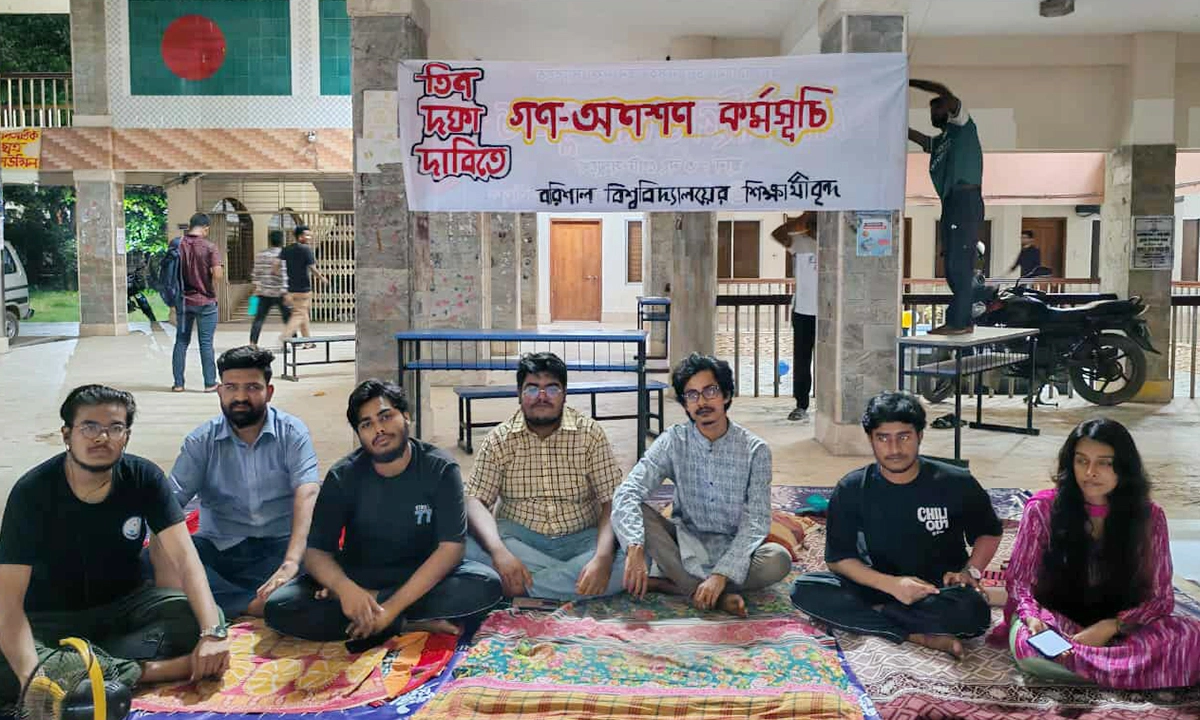 তিন
দফা
দাবিতে
গণ-অনশণ কর্মসূচি
বরিশাল বিশ্ববিদ্যালয়ের শিক্ষার্থীবৃন্দ
ছাত্র
CHILL
OUT
77